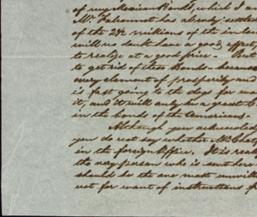 of my Mexican Bonds, which I am
Mr. Falconnet has already settled
of the 2½ millions of the in
will no doubt have a good effect
to realize at a good price. But
to get rid of these Bonds because
every element of prosperity and
is fast going to the dogs for wa
it, and will only be a great C
in the hands of the Americans.
Although you acknowled
you do not say whether Mr. Cha
in the foreign Office. It is rea
the very person who is sent here
should be the one most unwill
not for want of instructions f